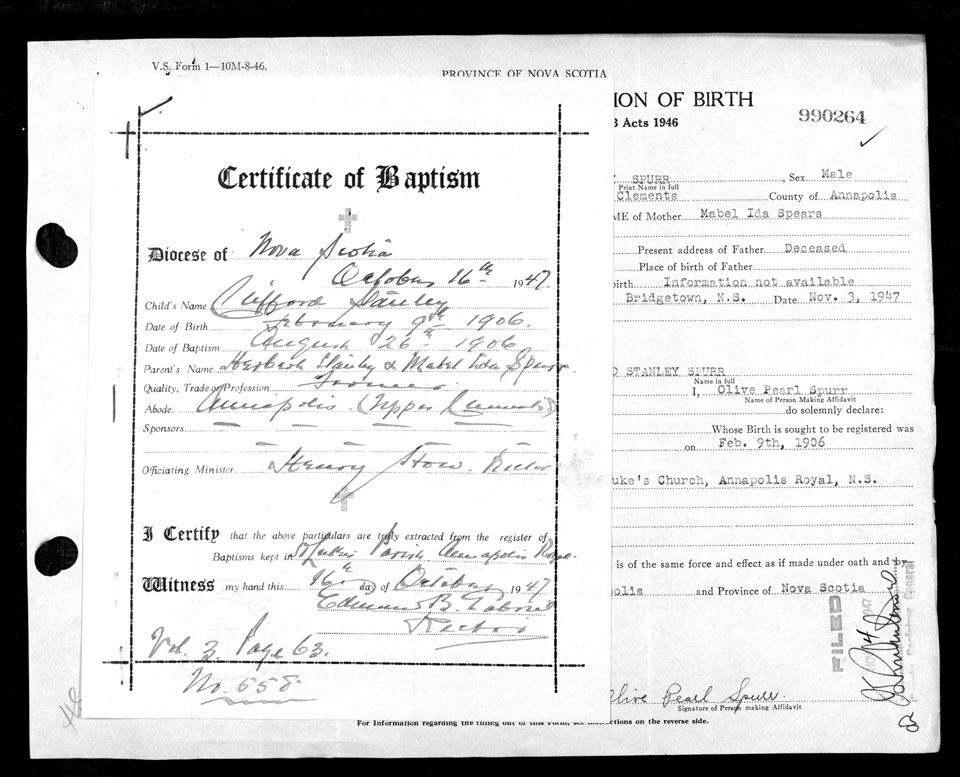 V.S. Form 1—10M-8-46.
PROVINCE OF NOVA SCOTIA
ION OF BIRTH
Acts 1946
990264
Certificate of Baptism
Diocese of Nova Scotia
October 16th 1947.
Child's Name Clifford Stanley
Date of Birth February 9th 1906.
Date of Baptism August 26th 1906
Parent's Name Herbert Stanley & Mabel Ida Spurr
Quality, Trade or Profession Farmer.
Abode Annapolis (Upper Clements)
Sponsors
Officiating Minister Henry How. Rector
I Certify that the above particulars are truly extracted from the register of
Baptisms kept in St Luke's Parish Annapolis Royal.
Witness my hand this 16th day of October 1947
Edmund B.
Rector
Vol. 3. Page 63.
No. 558
SPURR, Sex Male
Print Name in full
Clements County of Annapolis
ME of Mother Mabel Ida Spears
Present address of Father Deceased
Place of birth of Father
irth Information not available
Bridgetown, N.S. Date Nov. 3, 1947
D STANLEY SPURR
Name in full
I, Olive Pearl Spurr
Name of Person Making Affidavit
do solemnly declare:
Whose Birth is sought to be registered was
on Feb. 9th, 1906
uke's Church, Annapolis Royal, N.S.
is of the same force and effect as if made under oath and by
polis and Province of Nova Scotia
FILED
NOV 14 1947
General
Olive Pearl Spurr.
Signature of Person making Affidavit
For Information regarding the filling out of this Form, see instructions on the reverse side.